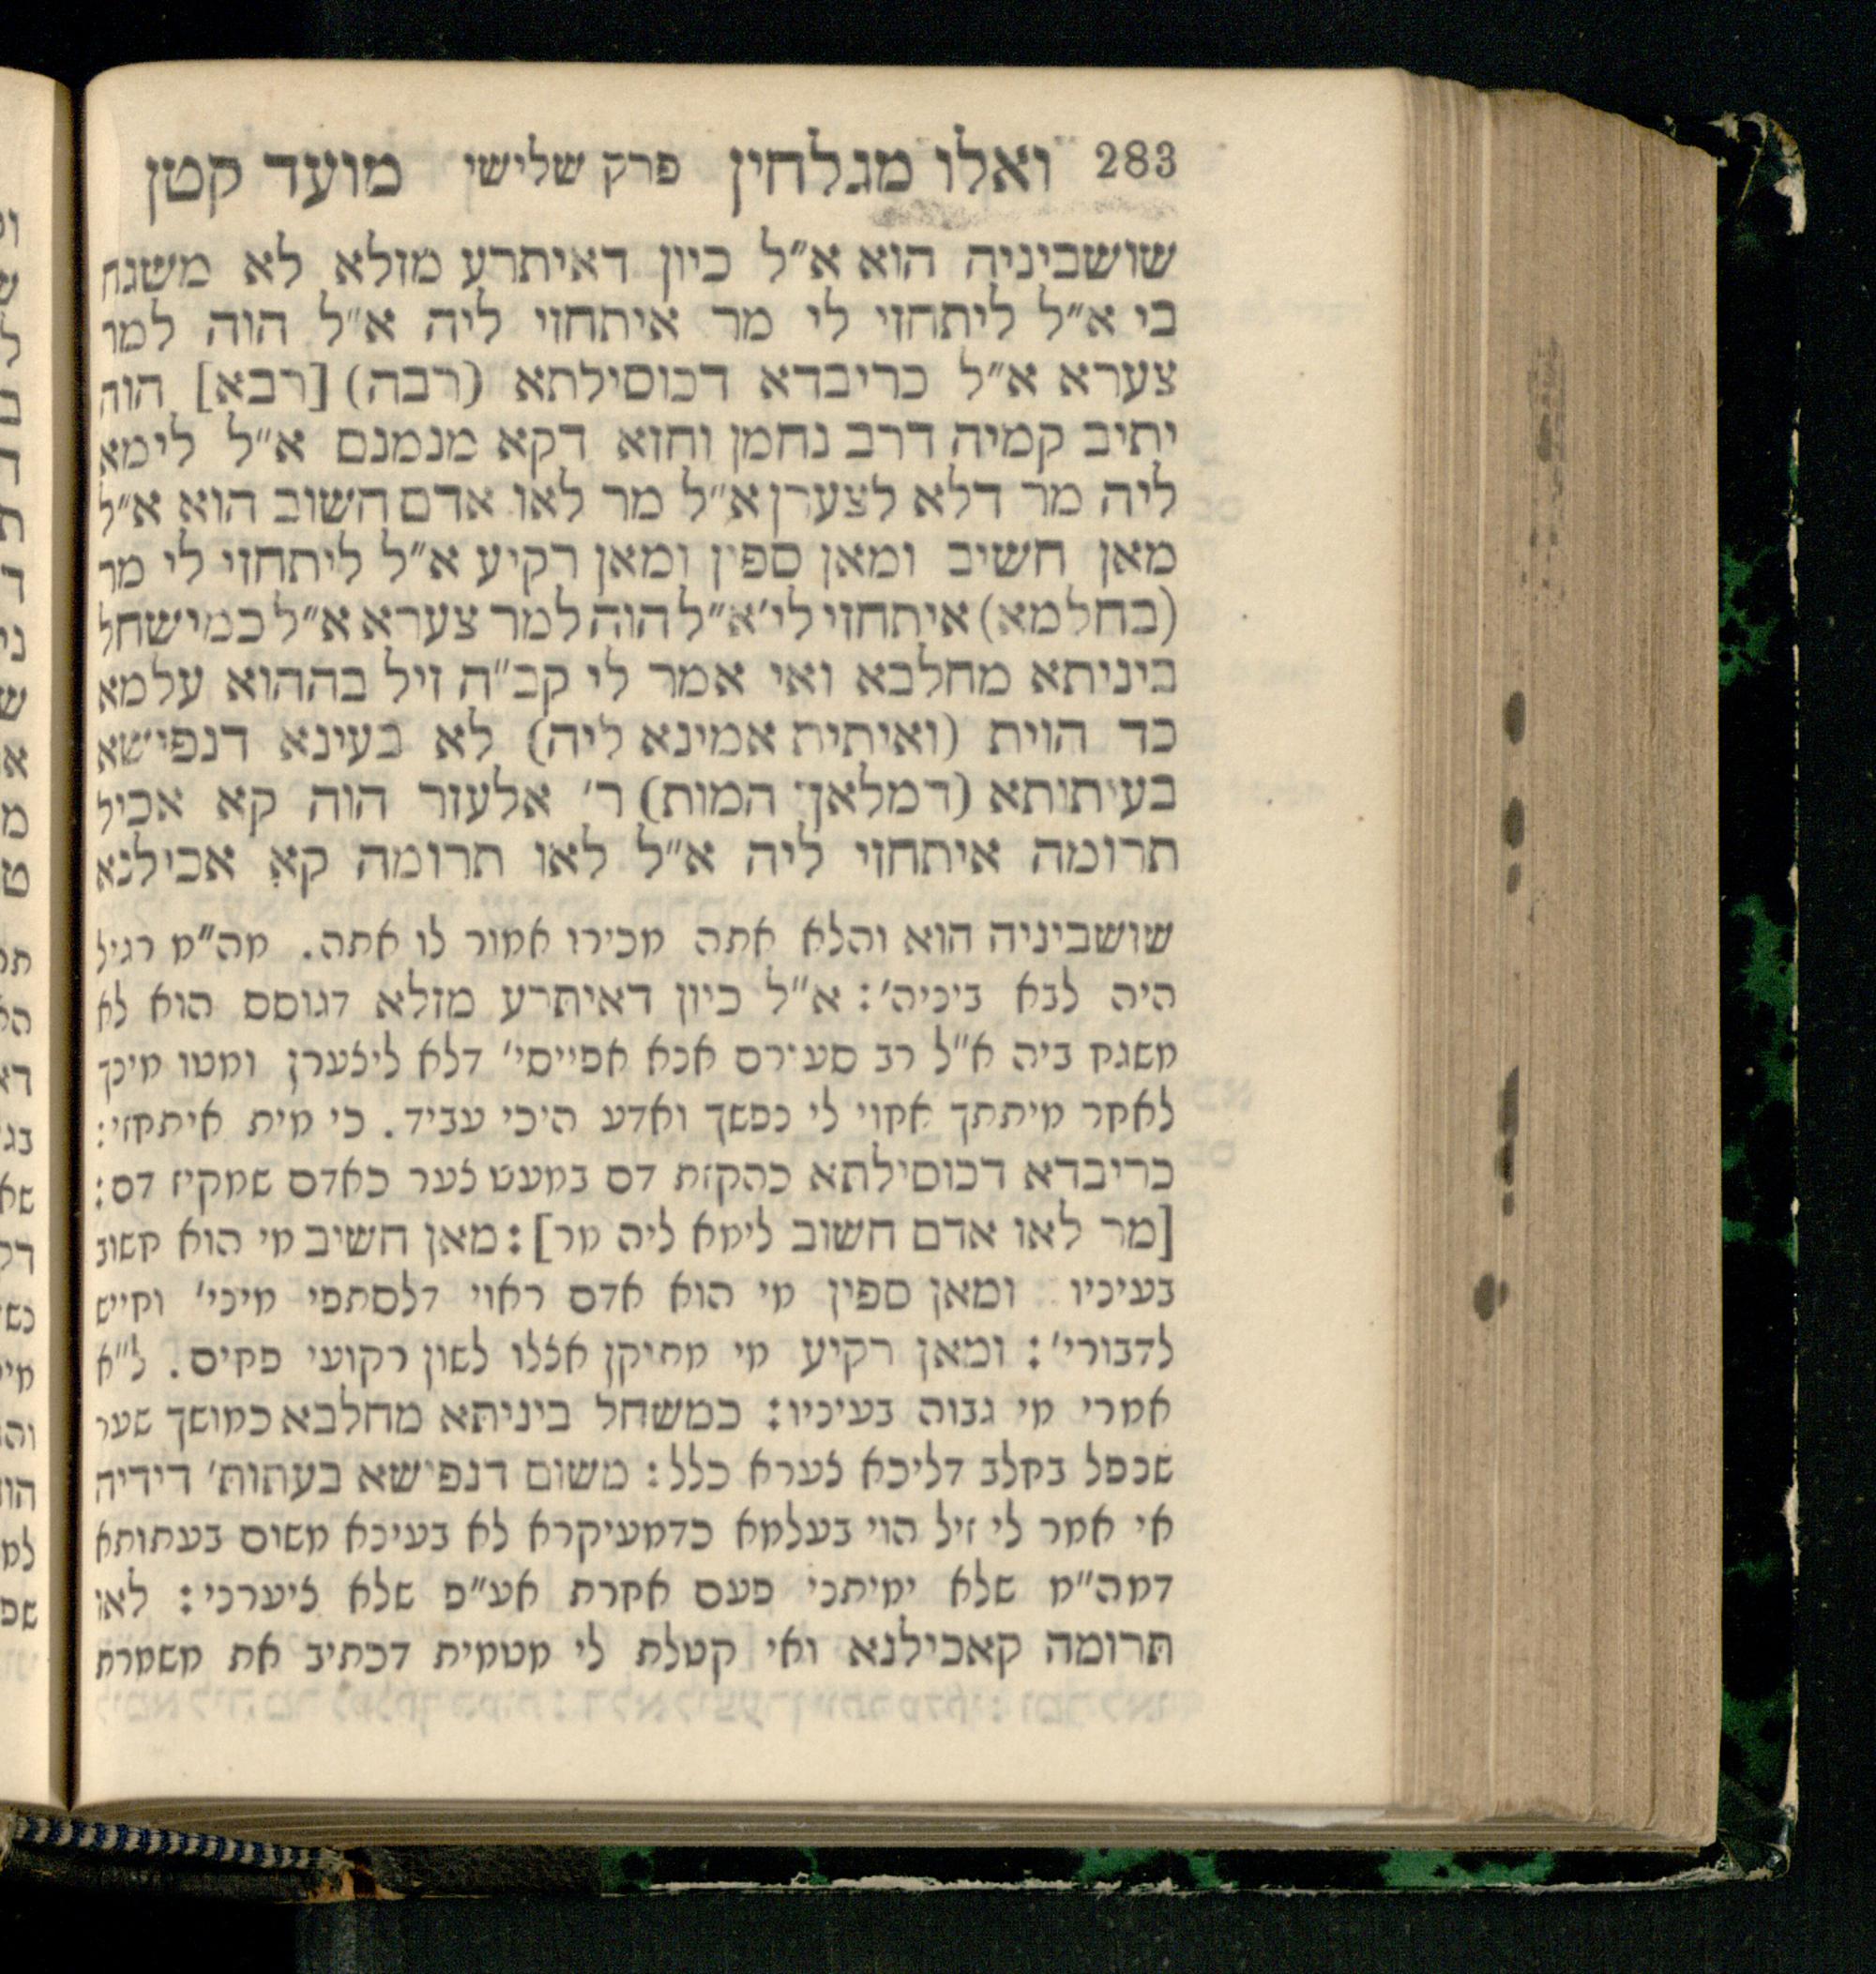 283 ואלו מגלחין פרק שלישי מועד קטן
שושביניה הוא א״ל כיון דאיתרע מזלא לא משגח
בי א״ל ליתחזי לי מר איתחזי ליה א״ל הוה למר
צערא א״ל כריבדא דכוסילתא (רבה) [רבא] הוה
יתיב קמיה דרב נחמן וחזא דקא מנמנם א״ל לימא
ליה מר דלא לצערן א״ל מר לאו אדם חשוב הוא א״ל
מאן חשיב ומאן ספין ומאן רקיע א״ל ליתחזי לי מר
(בחלמא) איתחזי לי׳ א״ל הוה למר צערא א״ל כמישחל
ביניתא מחלבא ואי אמר לי קב״ה זיל בההוא עלמא
כד הוית (ואיתית אמינא ליה) לא בעינא דנפישא
בעיתותא (דמלאך המות) ר׳ אלעזר הוה קא אכיל
תרומה איתחזי ליה א״ל לאו תרומה קא אכילנא
שושביניה הוא והלא אתה מכירו אמור לו אתה. מה״מ רגיל
היה לבא ביניה׳: א״ל כיון דאיתרע מזלא דגוסס הוא לא
משגח ביה א״ל רב סעורם אנא אפייסי׳ דלא ליצערן ומטו מינך
לאחר מיתתך אחוי לי נפשך ואדע היכי עביד. כי מית איתחזי:
כריבדא דכוסילתא כהקזת דם במעט צער כאדם שמקיז דם:
[מר לאו אדם חשוב לימא ליה מר]: מאן חשיב מי הוא חשוב
בעיניו ומאן ספין מי הוא אדם ראוי דלסתפי מיני׳ וחייש
לדבורי׳: ומאן רקיע מי מתיקן אצלו לשון רקועי פחים. ל״א
אמרי מי גבוה בעיניו: כמשחל ביניתא מחלבא כמושך שער
שנפל בחלב דליכא צערא כלל: משום דנפישא בעתות׳ דידיה
אי אמר לי זיל הוי בעלמא כדמעיקרא לא בעינא משום בעתותא
דמה״מ שלא ימיתני פעם אחרת אע״פ שלא ציערני: לאו
תרומה קאכילנא ואי קטלת לי מטמית דכתיב את משמרת